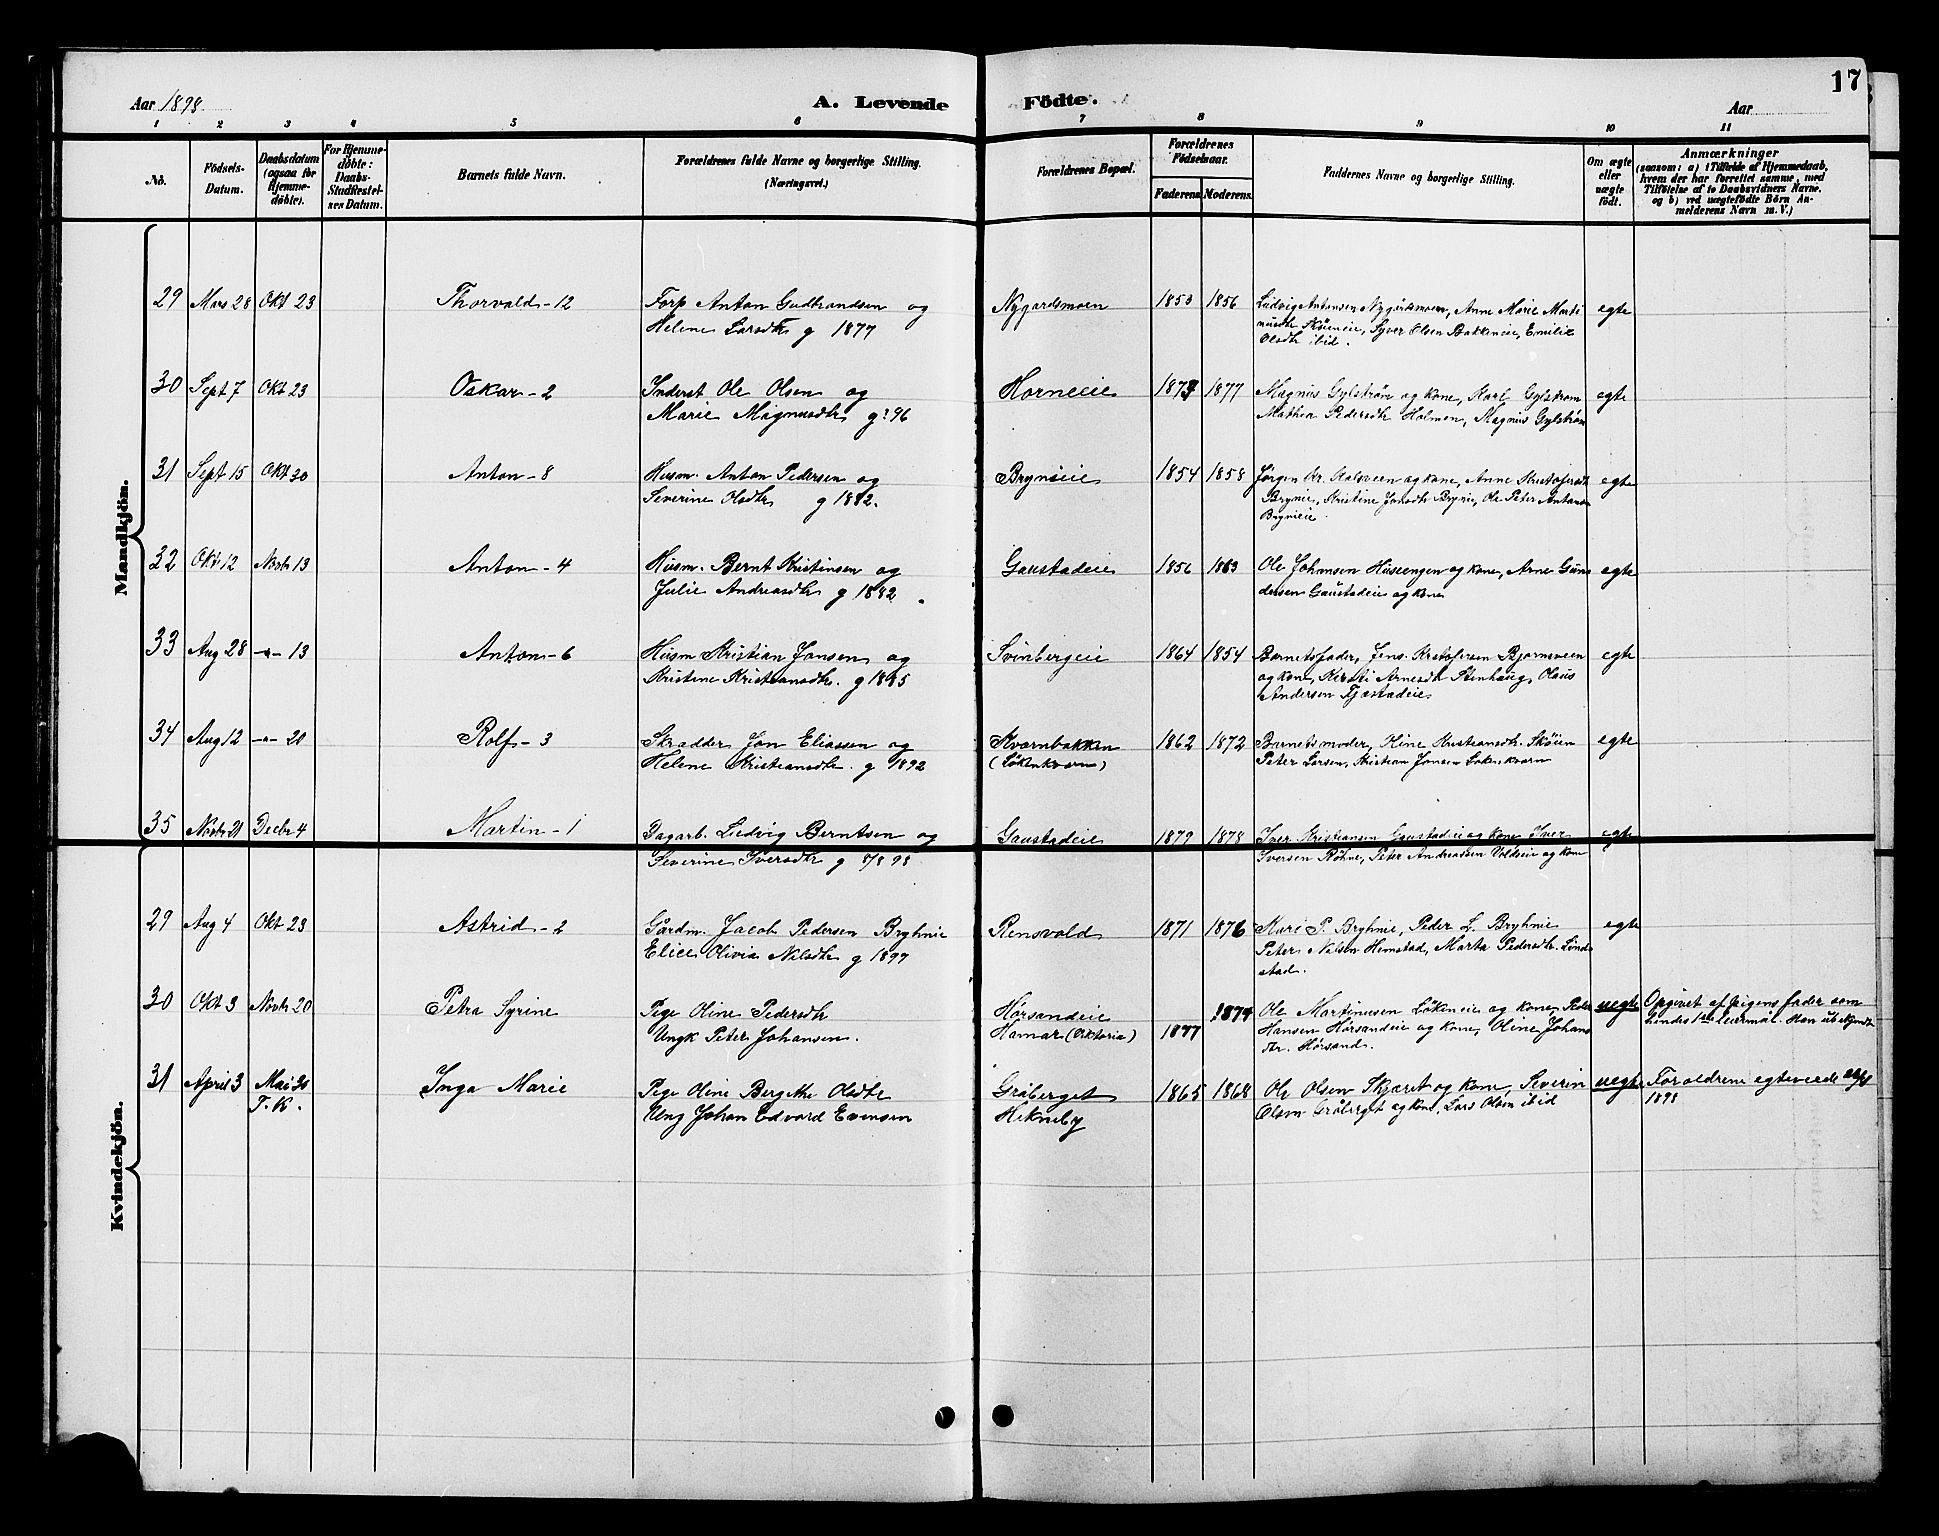 17
Aar 1898
A. Levende
Födte.
Aar
1 2 3 4 5 6 7 8 9 10 11
No.
Födsels-
Datum.
Daabsdatum
(ogsaa for
Hjemme-
döbte).
For Hjemme-
döbte:
Daabs-
Stadfæstel-
ses Datum.
Barnets fulde Navn.
Forældrenes fulde Navne og borgerlige Stilling.
(Næringsvei.)
Forældrenes Bopæl.
Forældrenes
Födselsaar.
Faderens. Moderens.
Faddernes Navne og borgerlige Stilling.
Om ægte
eller
uægte
födt.
Anmærkninger
(saasom: a) i Tilfælde af Hjemmedaab,
hvem der har forrettet samme, med
Tilföielse af to Daabsvidners Navne.
og b) ved uægtefödte Börn An-
melderens Navn m. V.)
Mandkjön.
29 Mars 28 Okt 23 Thorvald - 12 Forp Anton Gudbrandsen og Nygardsmoen 1850 1856 Ludvig Antonsen Nygårdsmoen, Anne Marie Marti
Helene Larsdtr g 1877 nusdtr Skøieneie, Syver Olsen Bakkeneie, Emilie egte
Olsdtr ibid.
30 Sept 7 Okt 23 Oskar - 2 Inderst Ole Olsen og Horneeie 1874 1877 Magnus Gylstrøm og kone, Karl Gylstrøm egte
Marie Magnusdtr g. 96 Mathea Pedersdtr Holmen, Magnus Gylstrøm
31 Sept 15 Okt 30 Anton - 8 Husm. Anton Pedersen og Brynieie 1854 1858 Jørgen Kr. Kalsveen og kone, Anne Kristofersdtr egte
Severine Olsdtr g 1882. Brynie, Kristine Johsdtr Brynie, Ole Peter Antonsen
Brynieie.
32 Okt 12 Novbr 13 Anton - 4 Husm. Bernt Kristinsen og Gaustadeie 1856 1863 Ole Johansen Huseengen og kone, Arne Gun egte
Julie Andreasdtr g 1882. dersen Gaustadeie og kone
33 Aug 28 -"- 13 Anton - 6 Husm Kristian Jonsen og Svinbergeie 1864 1854 Barnets fader, Jens Kristofersen Bjørnsveen egte
Kristine Kristiansdtr. g 1885 og kone, Kersti Arnesdtr Stenhaug, Olaus
Andersen Tjøstadeie
34 Aug 12 -"- 20 Rolf - 3 Skrædder Jon Eliassen og Kværnbakken 1862 1872 Barnets moder, Hine Kristiansdtr. Skøien egte
Helene Kristiansdtr. g 1892 (Løkenkværn) Peter Larsen, Kristian Jonsen Løkenkværn
35 Novbr 21 Decbr 4 Martin - 1 Dagarb. Ludvig Berntsen og Gaustadeie 1879 1878 Iver Kristiansen Gaustadeie og kone, Iver egte
Severine Iversdtr g 8/8 98 Iversen Røhne, Peter Andreassen Voldseie og kone
Kvindekjön.
29 Aug 4 Okt 23 Astrid - 2 Gårdm. Jacob Pedersen Bryhnie Rensvold 1871 1876 Kari P. Bryhnie, Peder L. Bryhnie egte
Elice Olivia Nilsdtr g 1897 Peter Nilsen Hemstad, Marta Pedersdtr. Lund
stad.
30 Okt 3 Novbr 20 Petra Syrine Pige Oline Pedersdtr Hørsandeie 1874 Ole Martinusen Løkeneie og kone, Peder uegte Opgivet af pigens fader som
Ungk Peter Johansen. Hamar (Viktoria) 1877 Hansen Hørsandeie og kone, Oline Johans hendes 1ste leiermål. Han ubekjendt
dtr. Hørsand.
31 April 3 Mai 30 Inga Marie Pige Oline Bergitte Olsdtr Gråberget 1865 1868 Ole Olsen Skjæret og kone, Severin uegte Forældrene egteviede
T. K. Ung Johan Edvard Evensen Hekneby Olsen Gråberget og kone, Lars Olsen ibid 1898